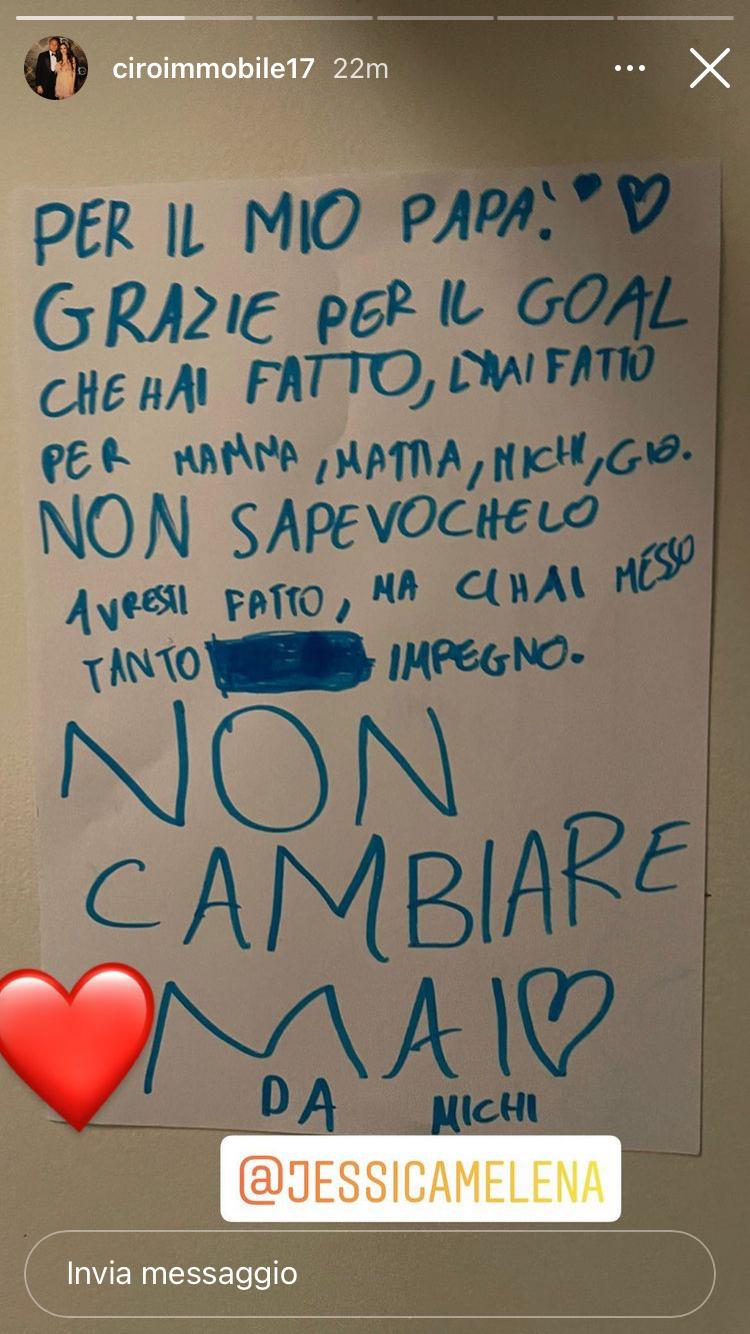 ciroimmobile17 22m
PER IL MIO PAPA'! ♥
GRAZIE PER IL GOAL
CHE HAI FATTO, L'HAI FATTO
PER MAMMA, MATTIA, MICHI, GIO.
NON SAPEVO CHE LO
AVRESTI FATTO, MA CI HAI MESSO
TANTO IMPEGNO.
NON
CAMBIARE
MAI ♡
DA MICHI
@JESSICAMELENA
Invia messaggio